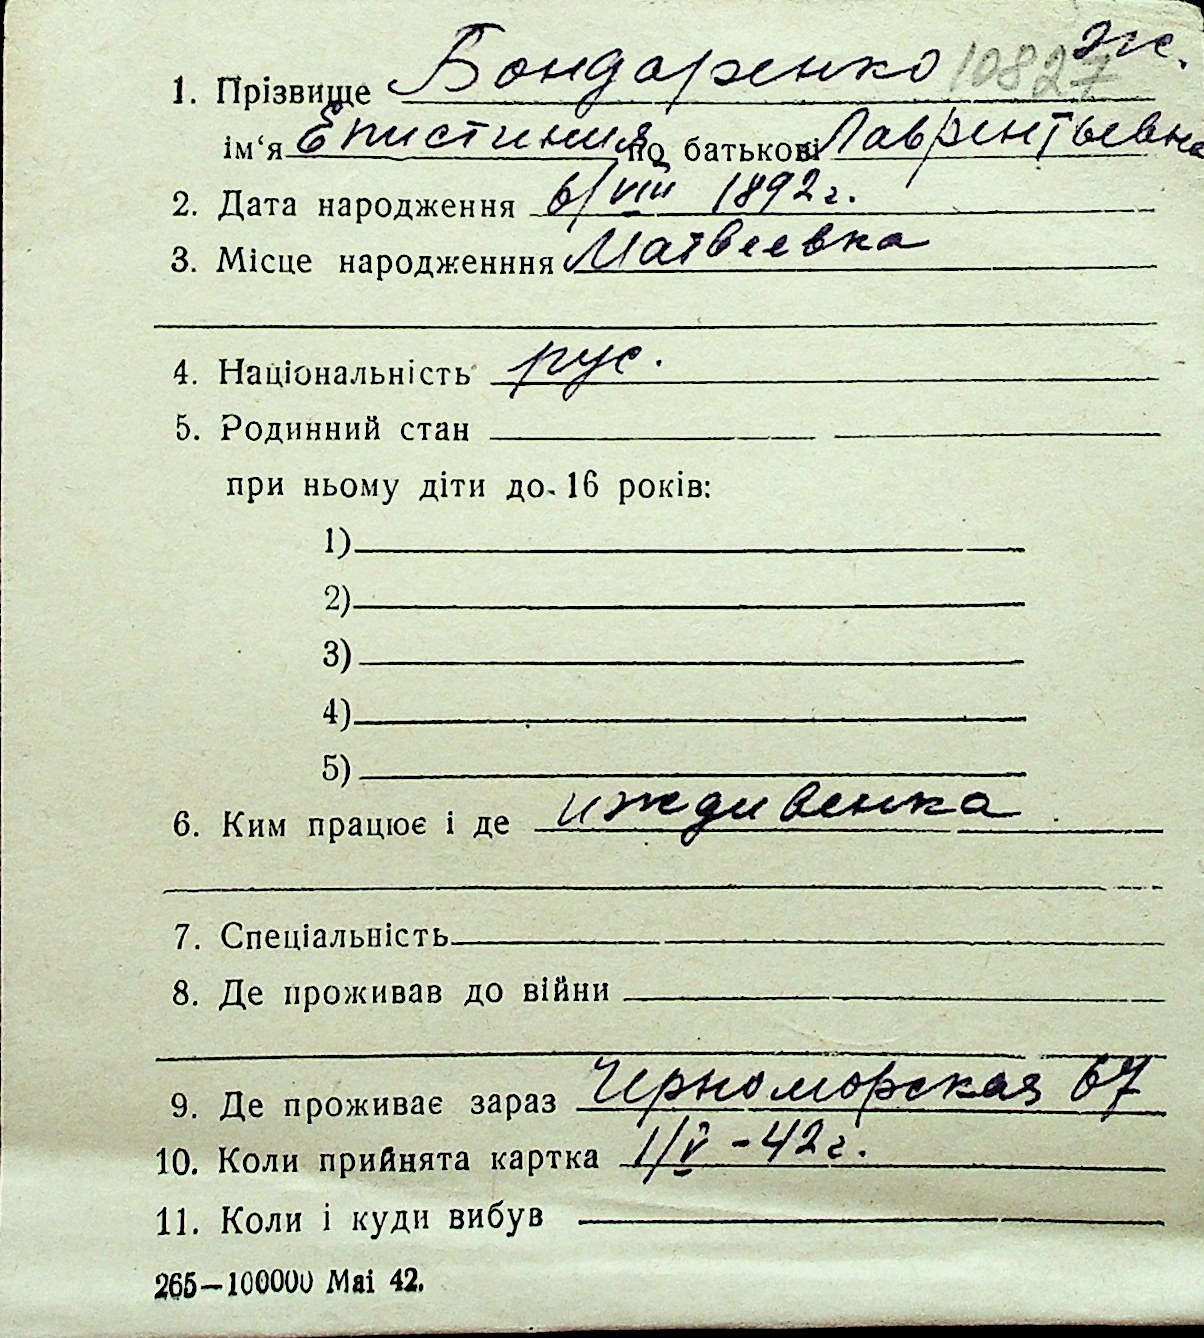 1. Прізвище Бондаренко 10827 эк.
ім‘я Епистиния по батькові Лаврентьевна
2. Дата народження 6/VIII 1892 г.
3. Місце народженння Матвеевка
4. Національність рус.
5. Родинний стан
при ньому діти до 16 років:
1)
2)
3)
4)
5)
6. Ким працює і де иждивенка
7. Спеціальність
8. Де проживав до війни
9. Де проживає зараз Черноморская 67
10. Коли прийнята картка 1/V -42 г.
11. Коли і куди вибув
265—100000 Mai 42.